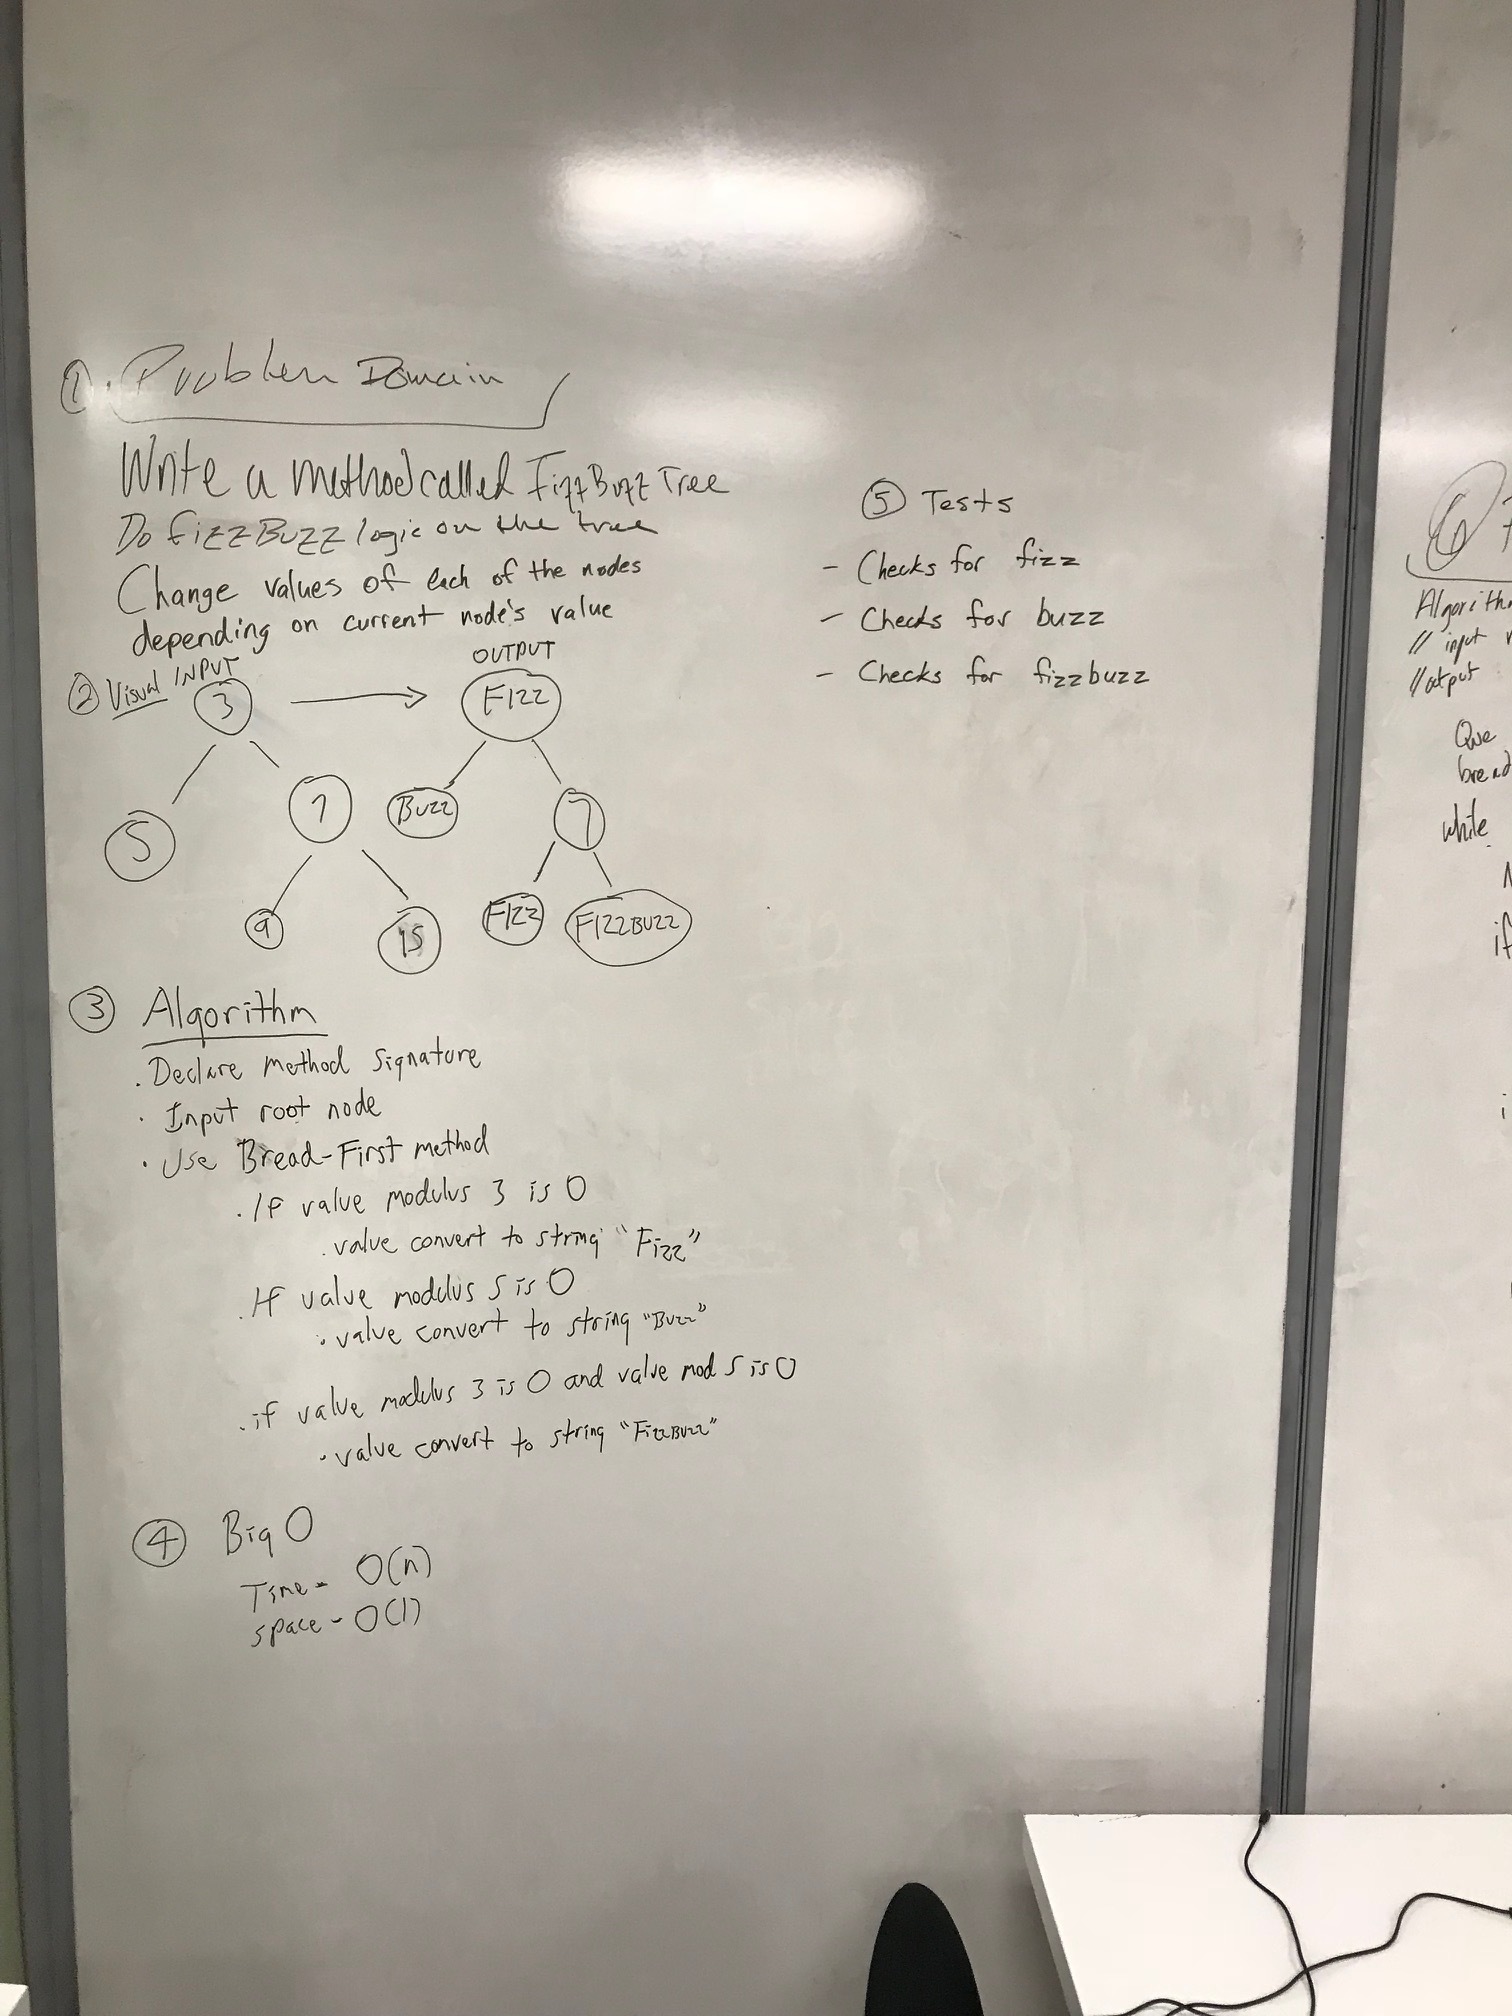 ① . Problem Domain
Write a method called FizzBuzz Tree
Do fizzBuzz logic on the tree
Change values of each of the nodes
depending on current node's value
② Visual INPUT
OUTPUT
3
FIZZ
5
7
Buzz
7
9
15
FIZZ
FIZZBUZZ
③ Algorithm
. Declare method signature
. Input root node
. Use Bread-First method
. If value modulus 3 is 0
. value convert to string "Fizz"
. If value modulus 5 is 0
. value convert to string "Buzz"
. if value modulus 3 is 0 and value mod 5 is 0
. value convert to string "FizzBuzz"
④ Big O
Time - O(n)
space - O(1)
⑤ Tests
- Checks for fizz
- Checks for buzz
- Checks for fizzbuzz
⑥
Algorith
// input
//output
Que
bread
while
if